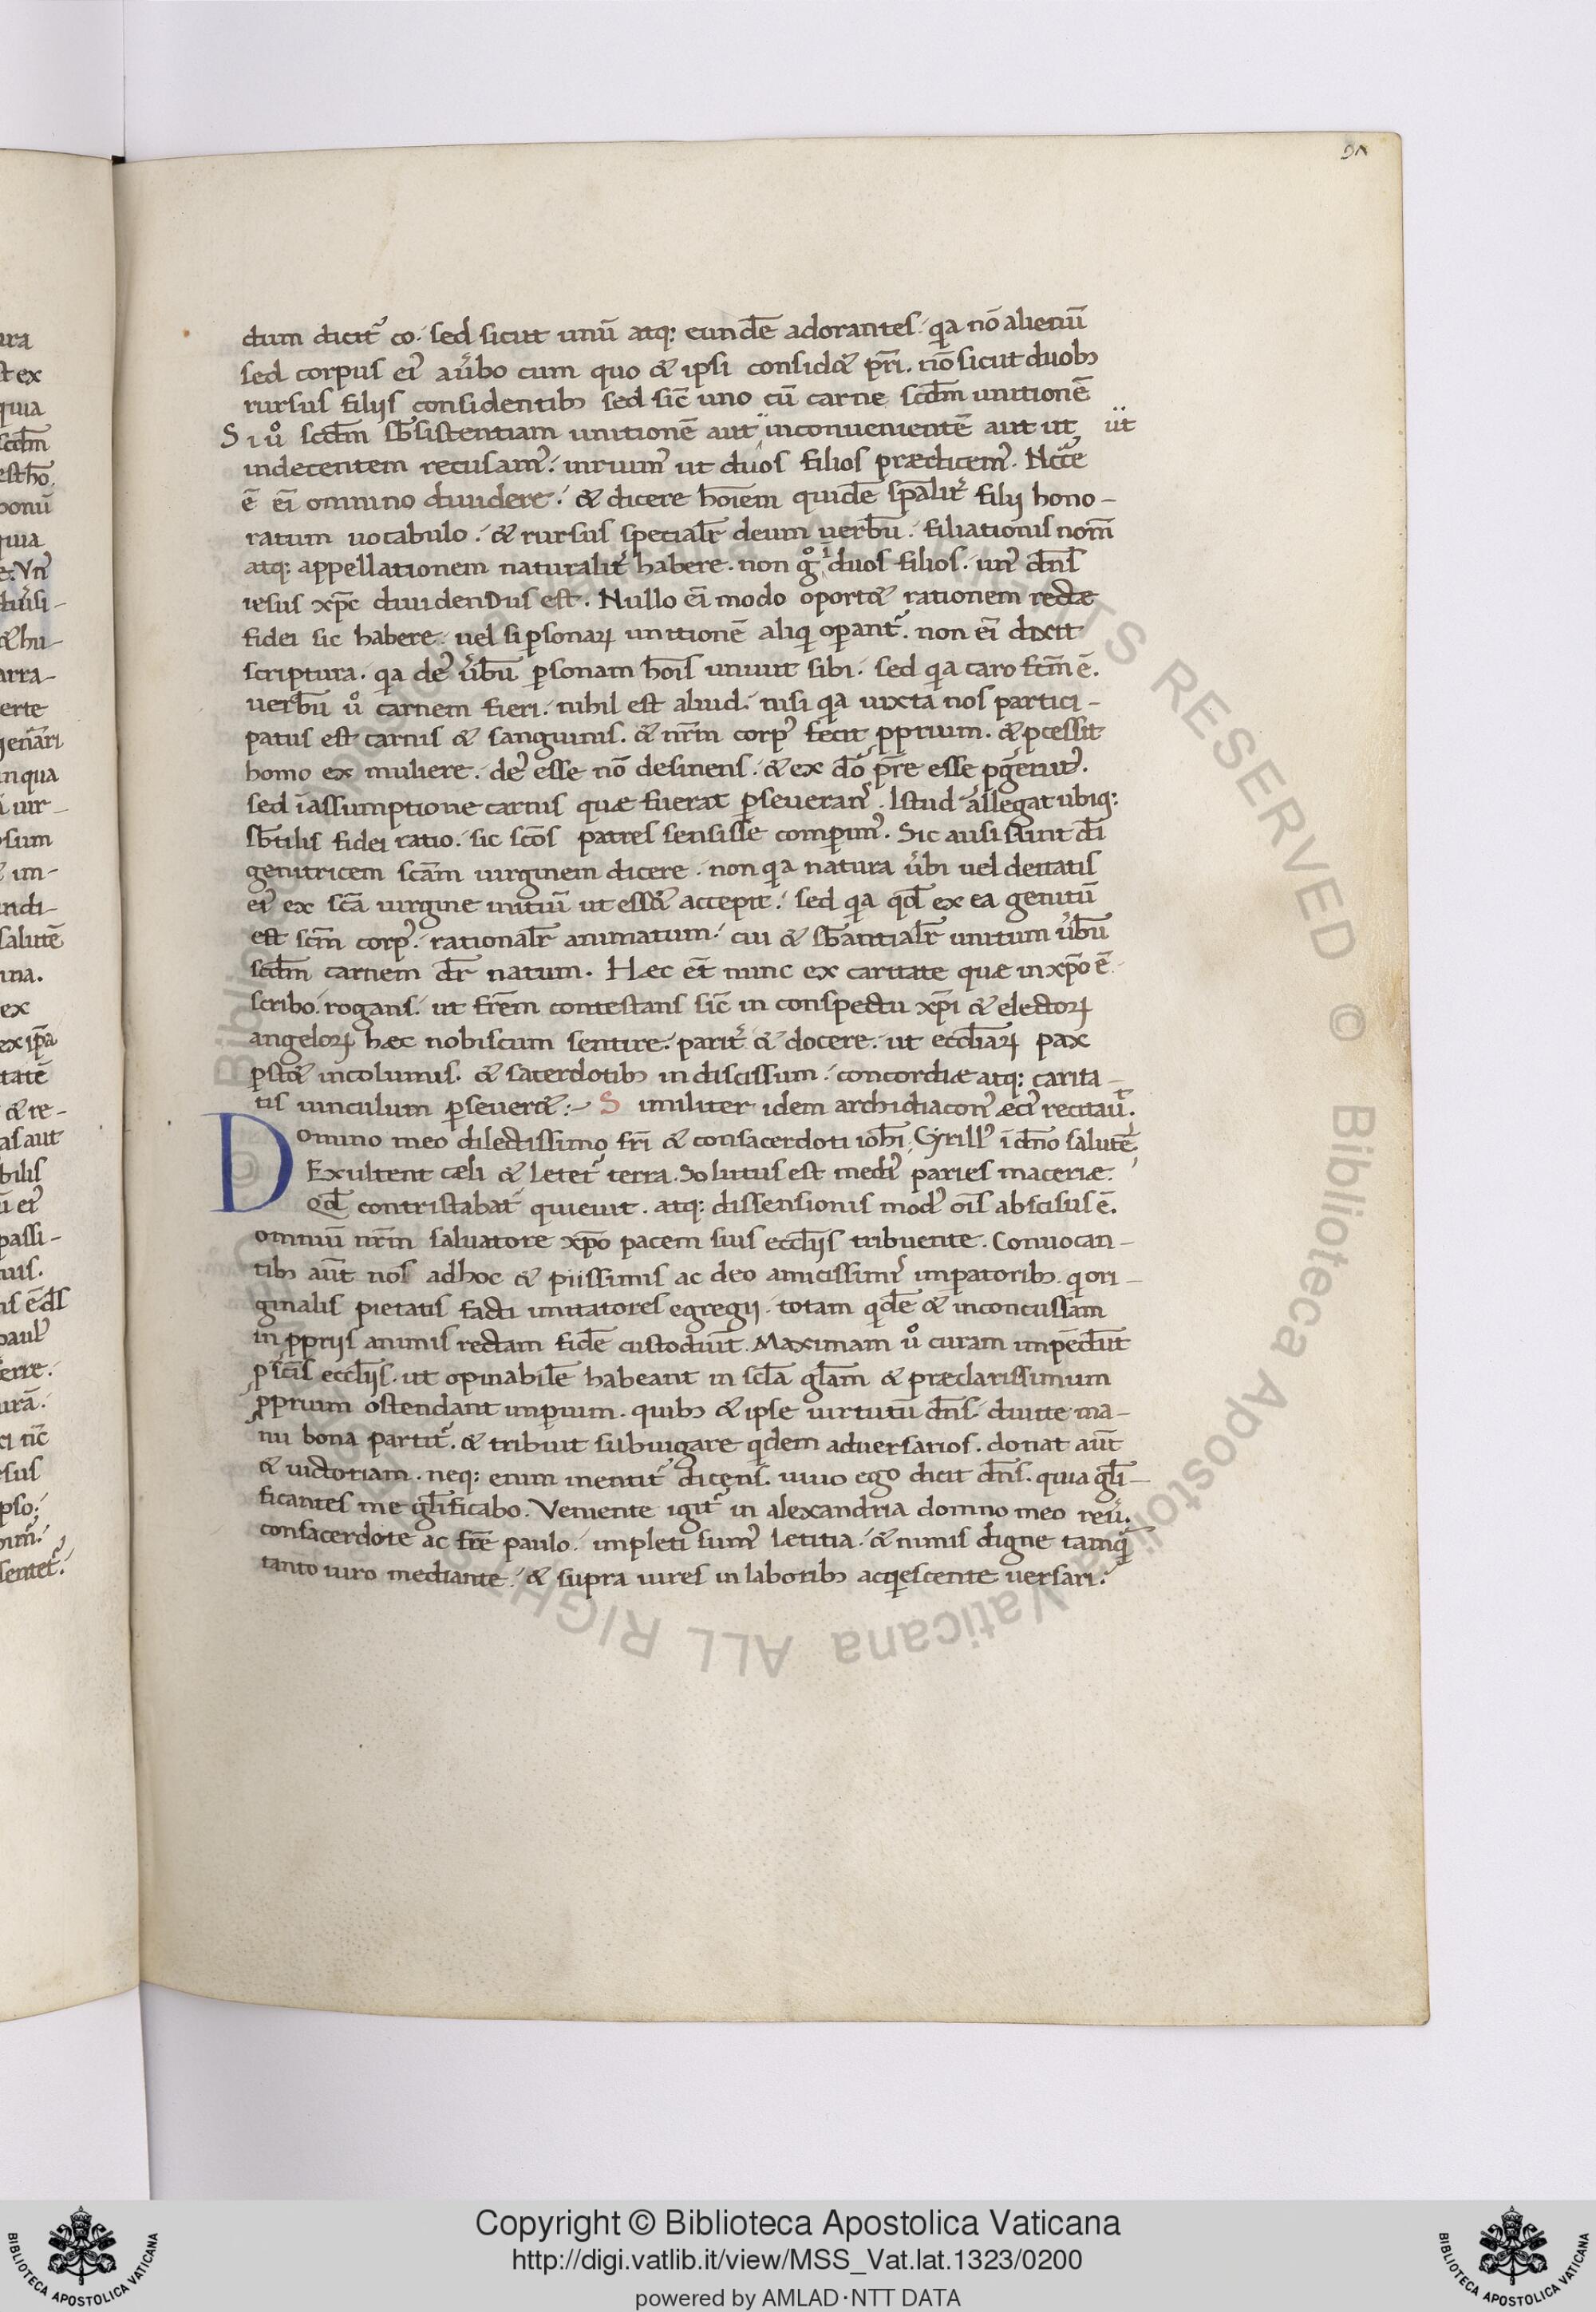 91
dum dicit᷒ co. sed sicut unū atq: eundē adorantes. qa nō alienū
sed corpus ei᷒ au᷒bo cum quo & ipsi consid& pr̄i. nō sicut duob᷒
rursus filijs considentib᷒ sed sic̄ uno cū carne scd̄m unitionē
Si uͦ scd̄m sb̄sistentiam unitionē aut inconuenientē aut ut üt
indecentem recusam᷒. inruim᷒ ut duos filios prædicem᷒. Nec̄ce
ē ei̅ omnino diuidere. & dicere hoīem quidē sp̄alit᷒ filij hono-
ratum uocabulo. & rursus specialr̄ deum uerbū. filiationis nom̄
atq: appellationem naturalit᷒ habere. non gͦ ī duos filios. un᷒ dn̄s
iesus xp̄c diuidendus est. Nullo ei̅ modo oport& rationem rectæ
fidei sic habere. uel si psonaꝝ unitionē aliqi opant᷒. non ei̅ dixit
scriptura. qa de᷒ u᷒bū psonam hoīs uniuit sibi. sed qa caro fc̄m ē.
uerbū uͦ carnem fieri. nihil est aliud. nisi qa iuxta nos partici-
patus est carnis & sanguinis. & nr̄m corp᷒ fecit pprium. & pcessit
homo ex muliere. de᷒ esse nō desinens. & ex dō pr̄e esse pgenit᷒.
sed ī assumptione carnis quæ fuerat pseueran᷒. Istud allegat ubiq:
sb̄tilis fidei ratio. sic scōs patres sensisse compim᷒. Sic ausi sunt dī
genitricem scām uirginem dicere. non qa natura u᷒bi uel deitatis
ei᷒ ex scā uirgine initiū ut ess& accepit. sed qa qd̄ ex ea genitū
est scm̄ corp᷒. rationalr̄ animatum. cui & sb̄antialr̄ unitum u᷒bū
scd̄m carnem dr̄ natum. Hæc et̄ nunc ex caritate quæ in xp̄o ē
scribo. rogans. ut fr̄em contestans sic̄ in conspectu xp̄i & electoꝝ
angeloꝝ hæc nobiscum sentire. parit᷒ & docere. ut eccl̄iaꝝ pax
pst& incolumis. & sacerdotib᷒ indiscissum. concordiæ atq: carita-
tis uinculum pseuer&:- Similiter idem archidiacon᷒ æci᷒ recitauͭ.
Domino meo dilectissimo fr̄i & consacerdoti ioh̄i. Cyrill᷒ ī dn̄o salutē
Exultent cæli & letet᷒ terra. Solutus est medi᷒ paries maceriæ.
Qd̄ contristabat᷒ quieuit. atq: dissensionis mod᷒ oīs abscisus ē.
omniū nr̄m saluatore xp̄o pacem suis eccl̄ijs tribuente. Conuocan-
tib᷒ aūt nos adhoc & piissimis ac deo amicissimi᷒ impatorib᷒. qi ori-
ginalis pietatis facti imitatores egregij. totam qidē & inconcussam
in pprijs animis rectam fidē custodiūt. Maximam uͦ curam impēdūt
p sc̄is eccl̄ijs. ut opinabilē habeant in scl̄a gl̄am & præclarissimum
pprium ostendant impium. quib᷒ & ipse uirtutū dn̄s. diuite ma-
nu bona partit᷒. & tribuit subiugare qidem aduersarios. donat aūt
& uictoriam. neq: enim mentit᷒ dicens. uiuo ego dicit dn̄s. quia gl̄i-
ficantes me gl̄ificabo. Veniente igit᷒ in alexandria domno meo reu᷒.
consacerdote ac fr̄e paulo. impleti sum᷒ letitia. & nimis digne tamqi
tanto uiro mediante. & supra uires in laborib᷒ acqiescente uersari.
Copyright © Biblioteca Apostolica Vaticana
http://digi.vatlib.it/view/MSS_Vat.lat.1323/0200
powered by AMLAD·NTT DATA